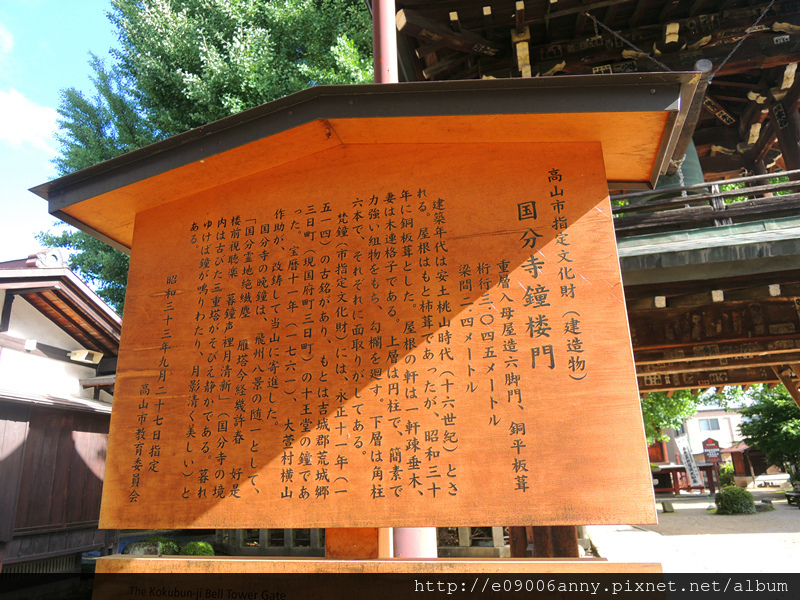 高山市指定文化財（建造物）
国分寺鐘楼門
重層入母屋造六脚門、銅平板葺
桁行三・〇四五メートル
梁間二・四メートル
建築年代は安土桃山時代（十六世紀）とさ
れる。屋根はもと柿葺であったが、昭和三十
年に銅板葺とした。屋根の軒は一軒疎垂木、
妻は木連格子である。上層は円柱で、簡素で
力強い組物をもち、勾欄を廻す。下層は角柱
六本で、それぞれに面取りがしてある。
梵鐘（市指定文化財）には、永正十一年（一
五一四）の古銘があり、もとは吉城郡荒城郷
三日町（現国府町三日町）の十王堂の鐘であ
った。宝暦十一年（一七六一）、大萱村横山
作助が、改鋳して当山に寄進した。
国分寺の晩鐘は、飛州八景の随一として、
「国分霊地絶繊塵　雁塔今経幾許春　好是
楼前視聴楽　暮鐘声裡月清新」（国分寺の境
内は古びた三重塔がそびえ静かである。暮れ
ゆけば鐘が鳴りわたり、月影清く美しい）と
ある。
昭和三十三年九月二十七日指定
高山市教育委員会
The Kokubun-ji Bell Tower Gate
http://e09006anny.pixnet.net/album